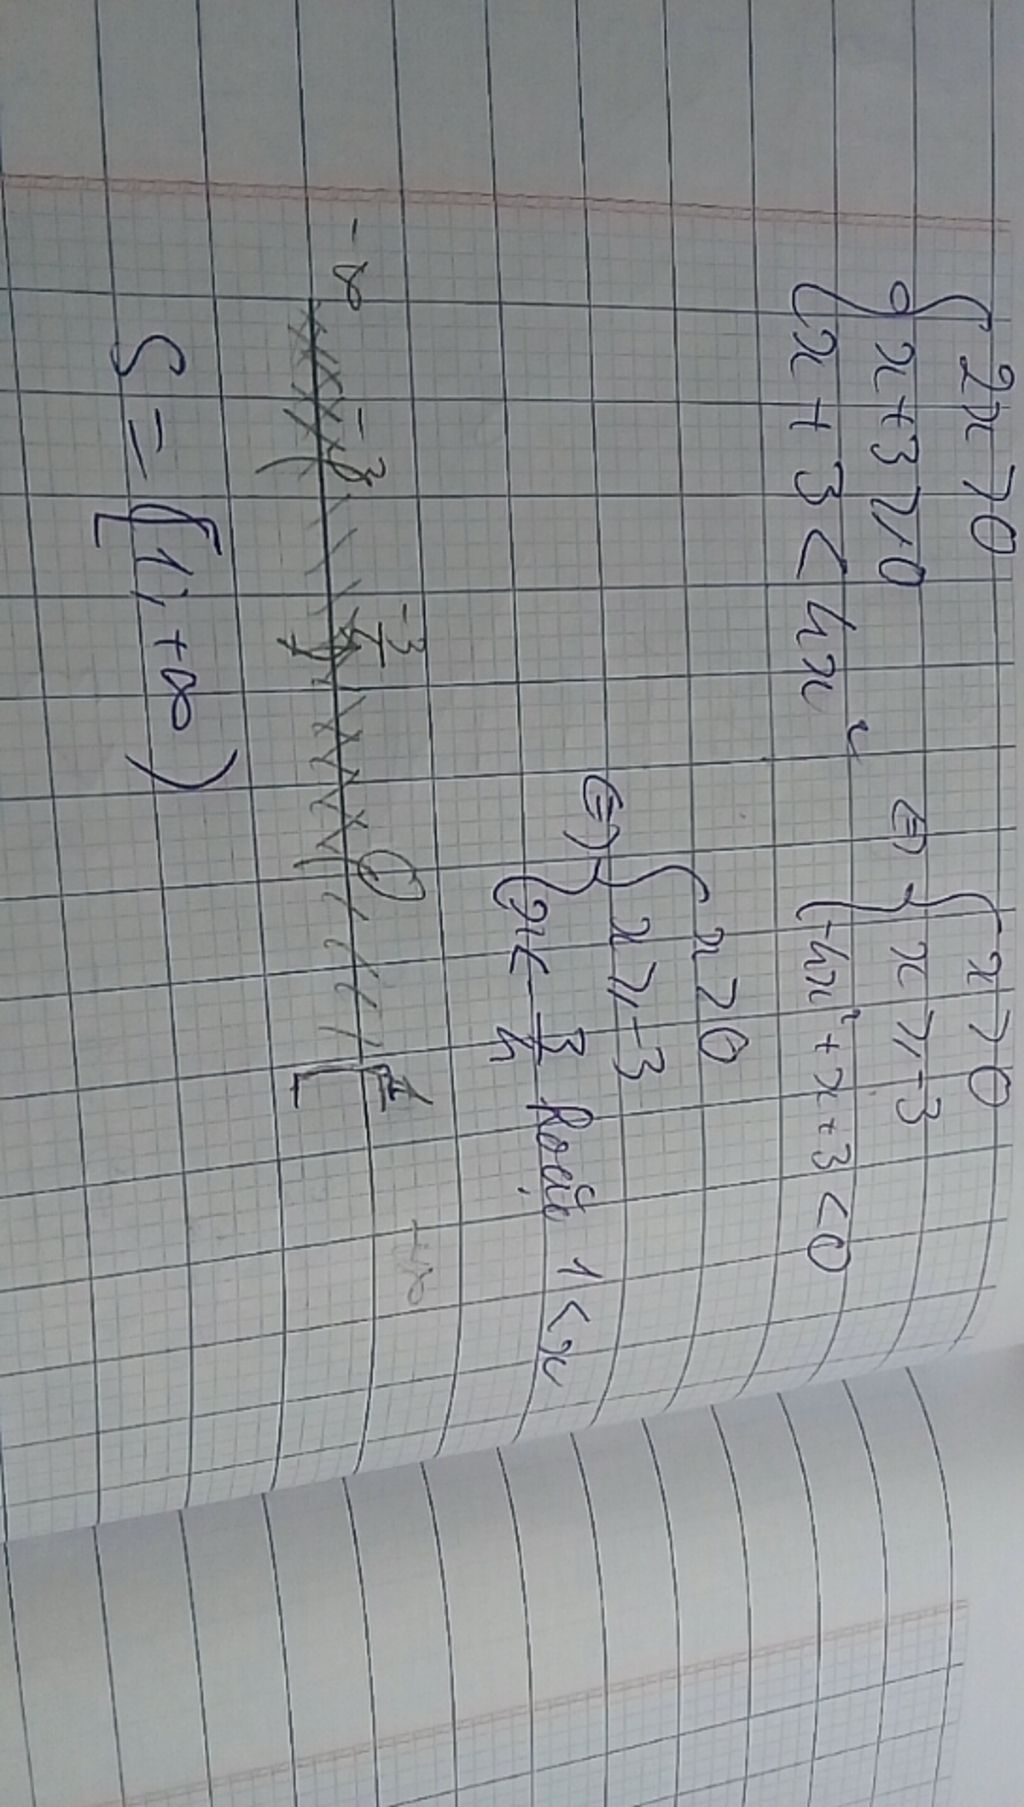 2x > 0
x + 3 ⩾ 0
x + 3 < 4x²
⇔ { x > 0
x ⩾ -3
-4x² + x + 3 < 0
⇔ { x > 0
x ⩾ -3
x < -3/4 hoặc 1 < x
-∞ -3 -3/4 0 1 +∞
S = [1; +∞)